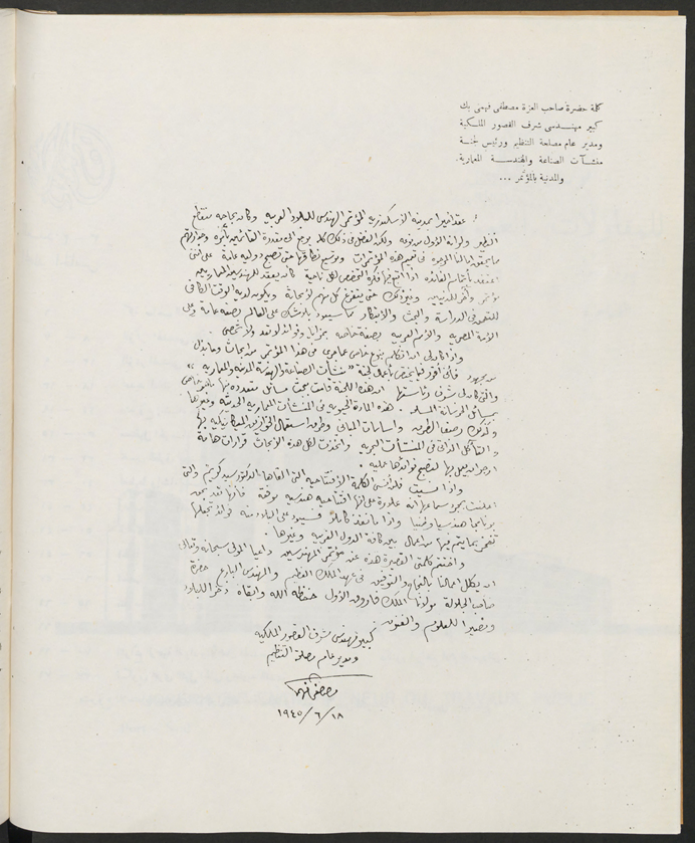 كلمة حضرة صاحب العزة مصطفى فهمى بك
كبير مهندسى شرف القصور الملكية
ومدير عام مصلحة التنظيم ورئيس لجنة
منشآت الصناعة والهندسة المعمارية
والمدنية بالمؤتمر ...
عقد أخيرا بمدينة الأسكندرية المؤتمر الهندسى للبلاد العربية وكان نجاحه منقطع
النظير ولرابطة
ما يحقق آمالنا تعميم هذه المؤتمرات وتوسيع نطاقها حتى تصبح دولية عامة على أننى
أعتقد الفائدة إذا فكرة التخصص لكل ناحية كأن يعقد للمهندسين المعماريين
مؤتمر وآخر للمدنيين حتى يتفرغ كل منهم لأبحاثه ويكون لديه الوقت الكافى
للتعمق فى الدراسة والبحث والابتكار مما سيعود بلا شك على العالم بصفة عامة وعلى
الأمة المصرية والأمم العربية بصفة خاصة بمزايا وفوائد لا تعد ولا تحصى .
وإذا كان لى أن أتكلم بنوع خاص عما جرى فى هذا المؤتمر من أبحاث وما بذل
من مجهود فأنى أقرر فيما يختص بأعمال لجنة " منشآت الصناعة والهندسة المدنية والمعمارية "
والتى كان لى شرف رئاستها ان هذه اللجنة قامت ببحث مسائل متعددة منها ما هو خاص
بمسائل الخرسانة المسلحة . هذه المادة الحيوية فى المنشآت المعمارية الحديثة وغيرها
وكذلك رصف الطرق وأساسات المبانى وطرق استعمال الخوازيق الميكانيكية بها
والتآكل الذاتى فى المنشآت البحرية واتخذت لكل هذه الأبحاث قرارات هامة
أرجو أن يعمل بها لتصبح فوائدها عملية .
وإذا نسيت فلا أنسى الكلمة الافتتاحية التى ألقاها الدكتور سيد كريم والتى
أعلنت بمجرد سماعها انه علاوة على انها افتتاحية هندسية موفقة فأنها تعد بحق
برنامجا هندسيا وطنيا وإذا ما نفذ كاملا فسيعود على البلاد منه فوائد تجعلها
تفخر بما يتم فيها من أعمال بين كافة الدول الغربية وغيرها .
وأختتم كلمتى القصيرة هذه عن مؤتمر المهندسين داعيا المولى سبحانه وتعالى
ان يكلل أعمالنا بالنجاح والتوفيق فى عهد الملك العظيم والمهندس البارع حضرة
صاحب الجلالة مولانا الملك فاروق الأول حفظه الله وأبقاه ذخرا للبلاد
ونصيرا للعلوم والفنون
كبير مهندسى شرف القصور الملكية
ومدير عام مصلحة التنظيم
مصطفى فهمى
١٩٤٥/٦/١٨